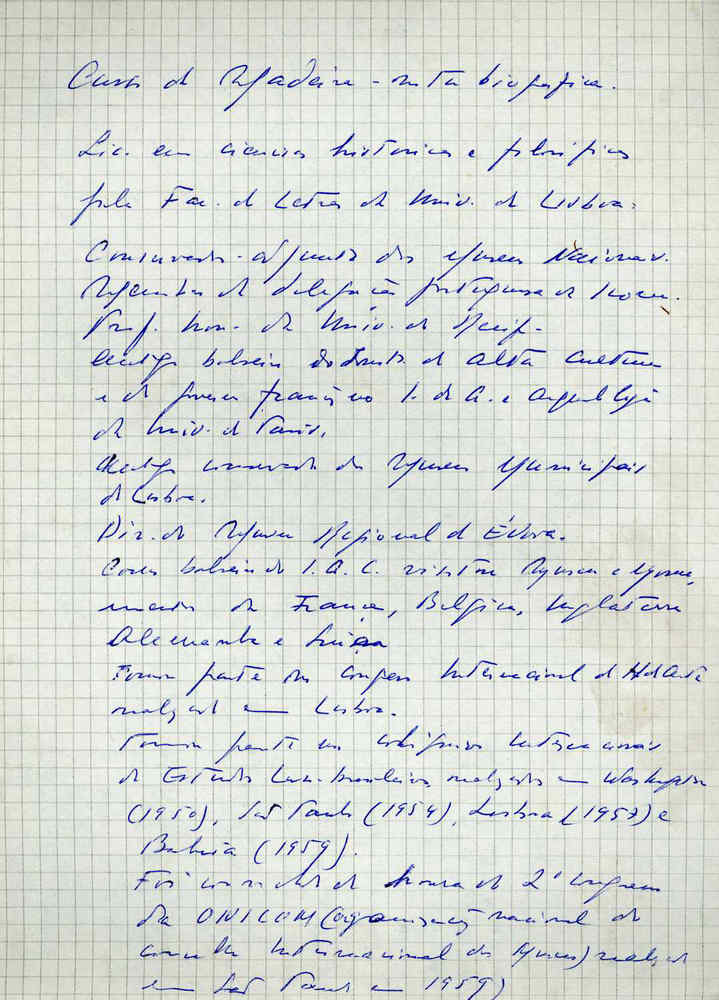 Curso da Madeira - nota biografica.
Lic. em ciencias historicas e filosoficas
pela Fac. de Letras da Univ. de Lisboa.
Conservador-adjunto dos Museus Nacionais.
Membro da delegação portuguesa do Icom.
Prof. hon. da Univ. do Recife
Antigo bolseiro do Instituto de Alta Cultura
e do governo francês no I. de A. e Arqueologia
da Univ. de Paris.
Antigo conservador dos Museus Municipais
de Lisboa.
Dir. do Museu Regional de Évora.
Como bolseiro do I.A.C. visitou Museus e
de França, Belgica, Inglaterra
Alemanha e Suiça
Tomou parte no congresso Internacional de H. da Arte
realizado em Lisboa.
Tomou parte nos coloquios internacionais
de Estudos Luso-brasileiros realizados em Washington
(1950), São Paulo (1954), Lisboa (1957) e
Bahia (1959).
Foi convidado de honra do 2º congresso
da ONICOM (organização nacional do
conselho Internacional dos Museus) realizado
em São Paulo em 1959)